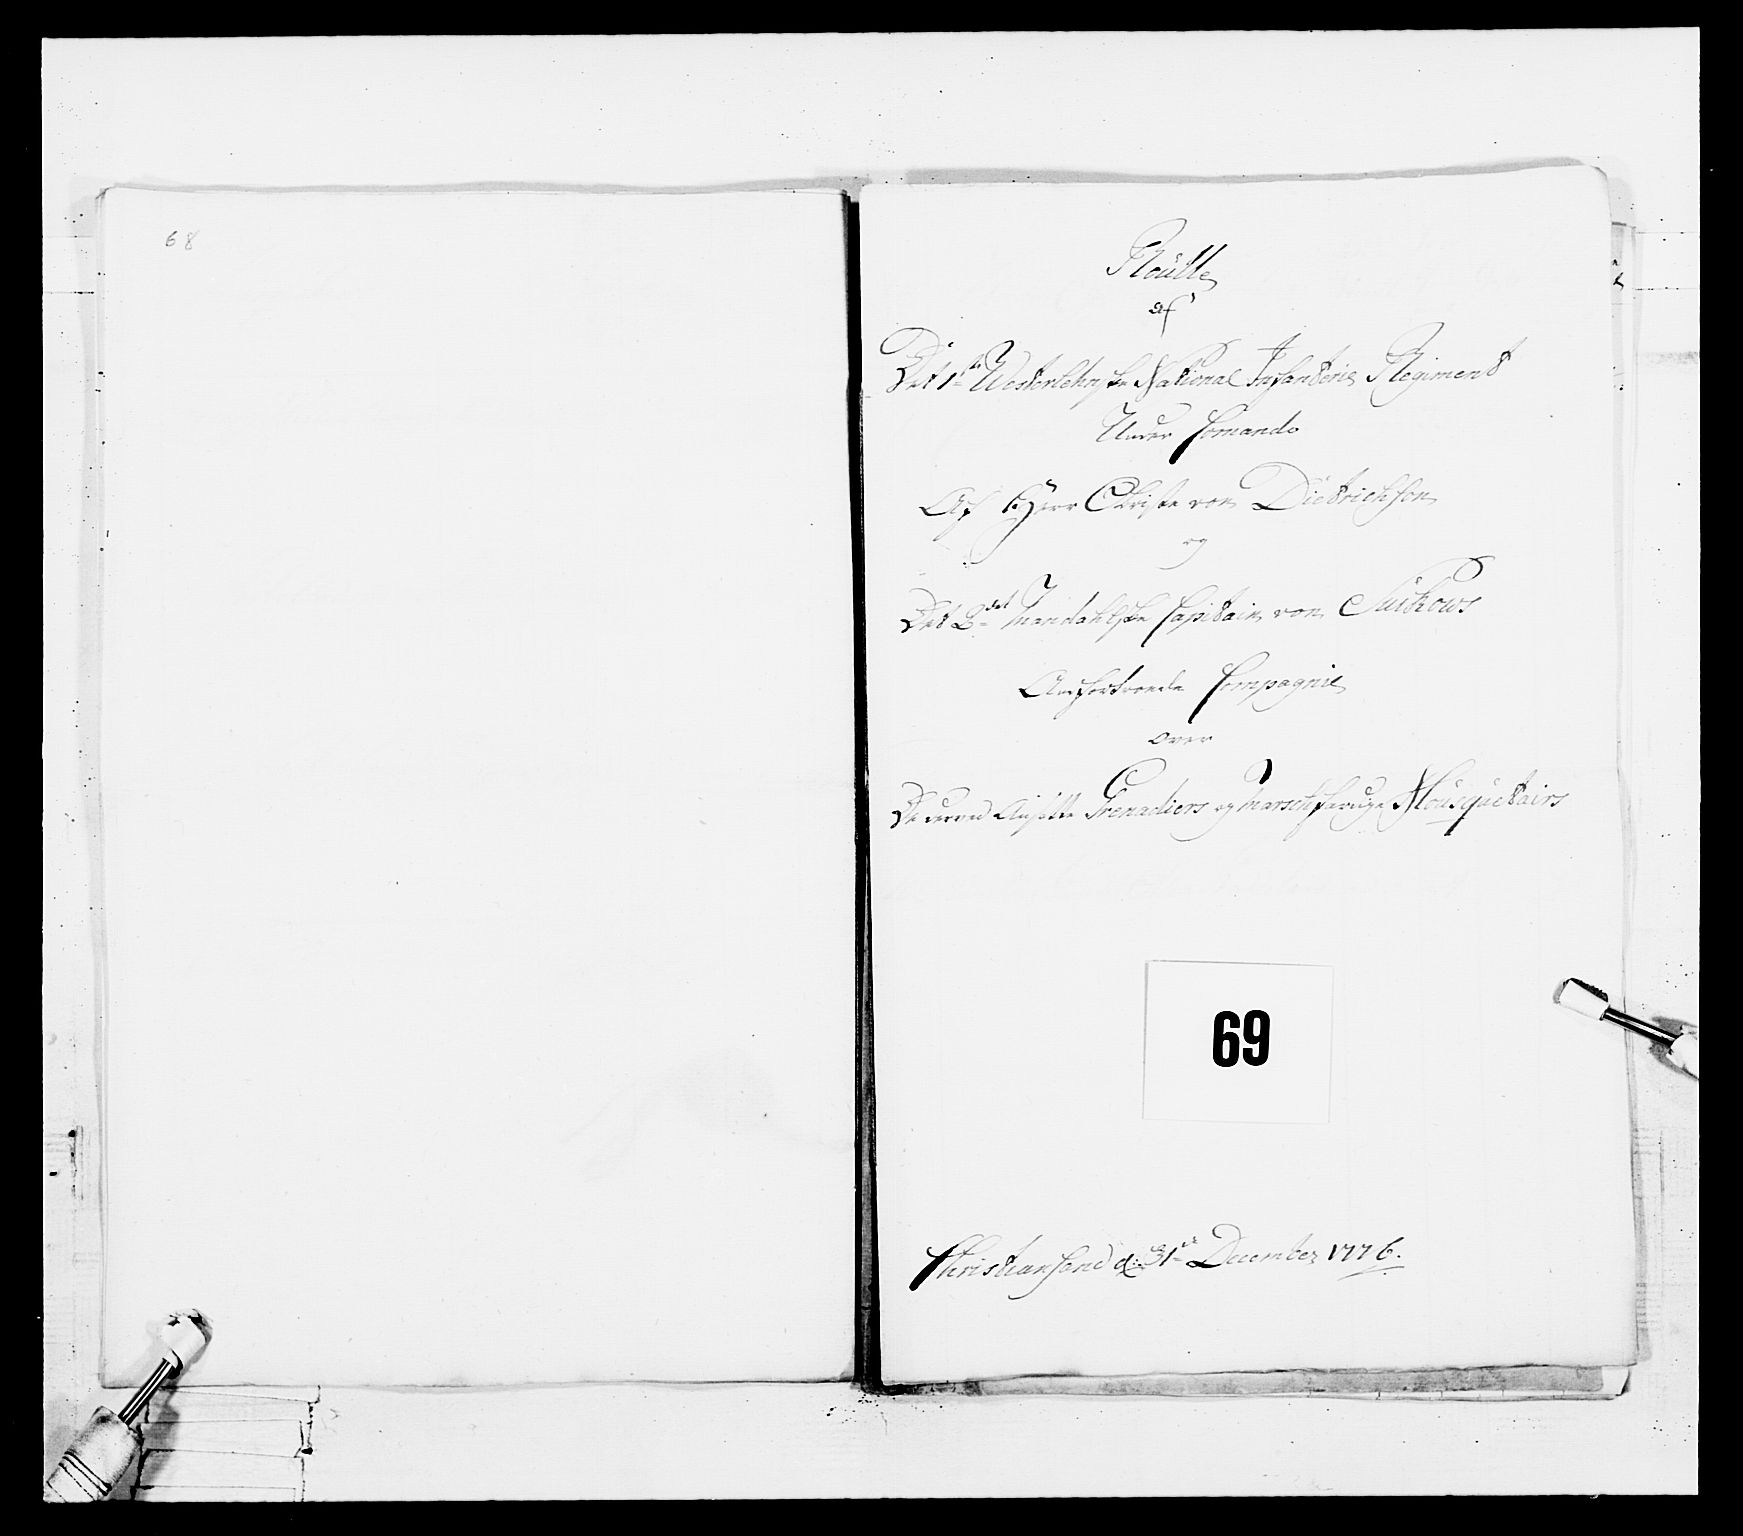 68
Roulle
af
Det 1ste Westerlehnske National Infanterie Regiment
Under Comando
Af Herr Obriste von Dietrichson
og
Det 2det Mandahlske Capitain von Suckows
Anfortroede Compagnie
over
De derved Ansatte Grenadiers og Marschferdige Mousquetairs
69
Christiansand d: 31te December 1776.